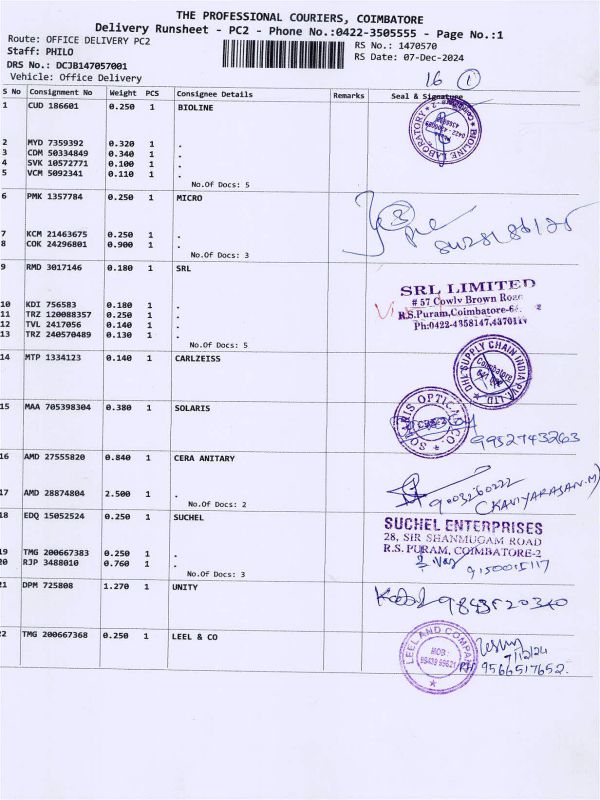 THE PROFESSIONAL COURIERS, COIMBATORE
Delivery Runsheet - PC2 - Phone No.:0422-3505555 - Page No.:1
Route: OFFICE DELIVERY PC2
RS No.: 1470570
Staff: PHILO
RS Date: 07-Dec-2024
DRS No.: DCJB147057001
Vehicle: Office Delivery
16 1
S No Consignment No Weight PCS Consignee Details Remarks Seal & Signature
1 CUD 186601 0.250 1 BIOLINE
BIOLINE LABORATORY
2 MYD 7359392 0.320 1 .
3 CDM 50334849 0.340 1 .
4 SVK 10572771 0.100 1 .
5 VCM 5092341 0.110 1 .
No.Of Docs: 5
6 PMK 1357784 0.250 1 MICRO
7 KCM 21463675 0.250 1 .
8 COK 24296801 0.900 1 .
No.Of Docs: 3
9 RMD 3017146 0.180 1 SRL
SRL LIMITED
# 57 Cowly Brown Road
R.S.Puram, Coimbatore-
Ph:0422-4358147,
10 KDI 756583 0.180 1 .
11 TRZ 120088357 0.250 1 .
12 TVL 2417056 0.140 1 .
13 TRZ 240570489 0.130 1 .
No.Of Docs: 5
14 MTP 1334123 0.140 1 CARLZEISS
SUPPLY CHAIN INDIA PVT. LTD
Coimbatore
15 MAA 705398304 0.380 1 SOLARIS
SOLARIS OPTIC
9952743263
16 AMD 27555820 0.840 1 CERA ANITARY
9003260222
(KAVIYARASAN.M)
17 AMD 28874804 2.500 1 .
No.Of Docs: 2
18 EDQ 15052524 0.250 1 SUCHEL
SUCHEL ENTERPRISES
28, SIR SHANMUGAM ROAD
R.S. PURAM, COIMBATORE-2
9150015117
19 TMG 200667383 0.250 1 .
20 RJP 3488010 0.760 1 .
No.Of Docs: 3
21 DPM 725808 1.270 1 UNITY
22 TMG 200667368 0.250 1 LEEL & CO
LEEL AND COMPANY
MOB:
7/12/24
PH: 9566517652.